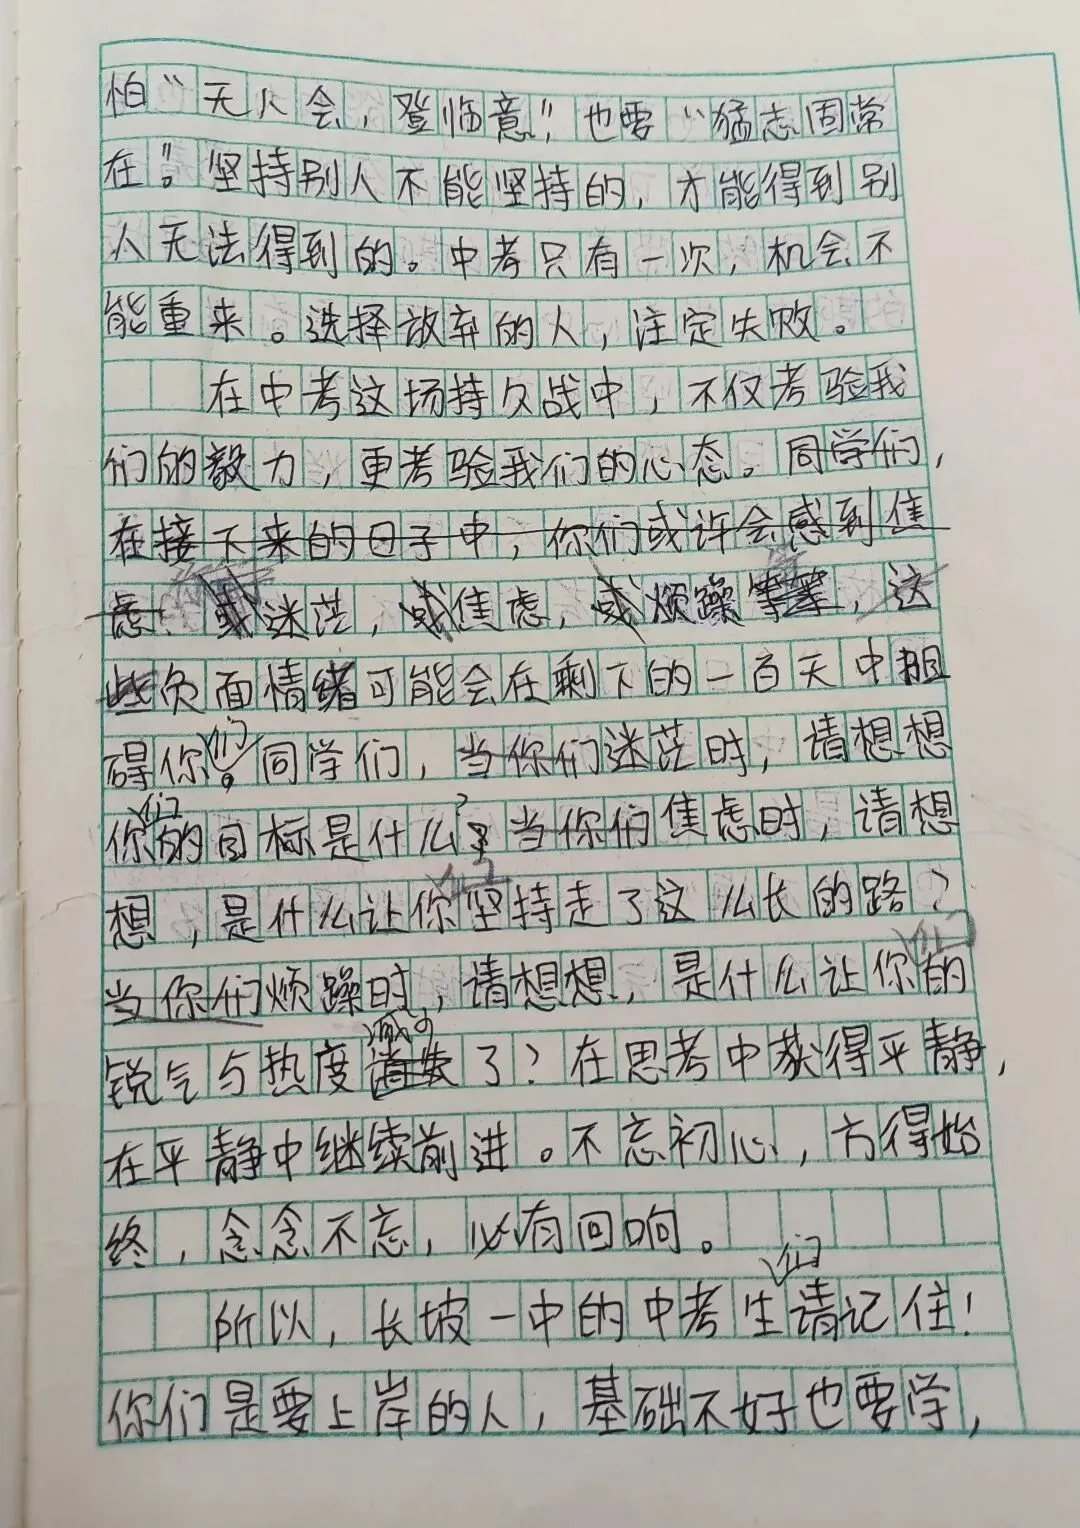 怕“无人会，登临意”，也要“猛志固常
在”。坚持别人不能坚持的，才能得到别
人无法得到的。中考只有一次，机会不
能重来。选择放弃的人，注定失败。
在中考这场持久战中，不仅考验我
们的毅力，更考验我们的心态。同学们，
在接下来的日子中，你们或许会感到焦
虑、或迷茫，或焦虑，或烦躁等等，这
些负面情绪可能会在剩下的一百天中阻
碍你们。同学们，当你们迷茫时，请想想
你们的目标是什么？当你们焦虑时，请想
想，是什么让你们坚持走了这么长的路？
当你们烦躁时，请想想，是什么让你们的
锐气与热度减少了？在思考中获得平静，
在平静中继续前进。不忘初心，方得始
终，念念不忘，必有回响。
所以，长坡一中的中考生们请记住！
你们是要上岸的人，基础不好也要学，